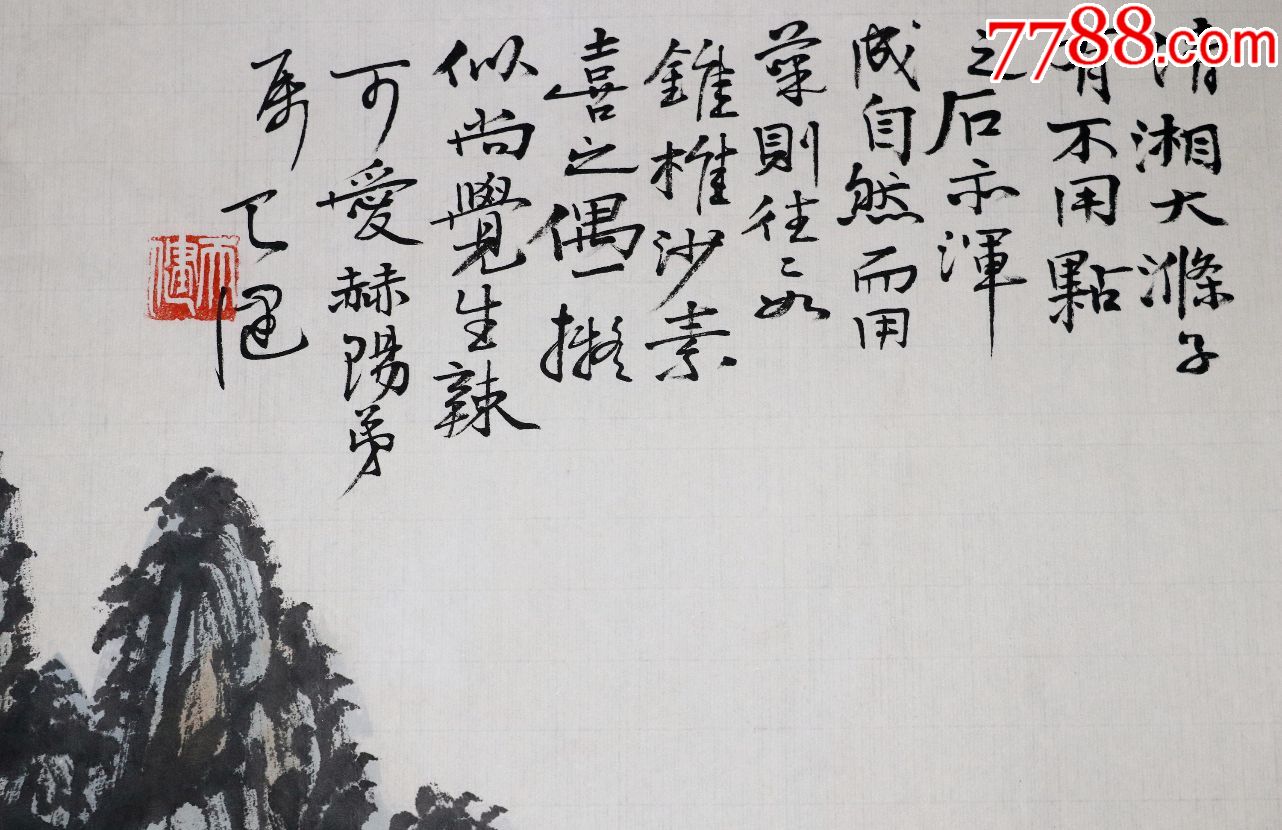 清湘大滌子
有不用點
之石亦渾
成自然而用
筆則往〻如
錐榷沙素
喜之偶一擬
似尚覺生辣
可愛赫陽弟
天健
7788.com